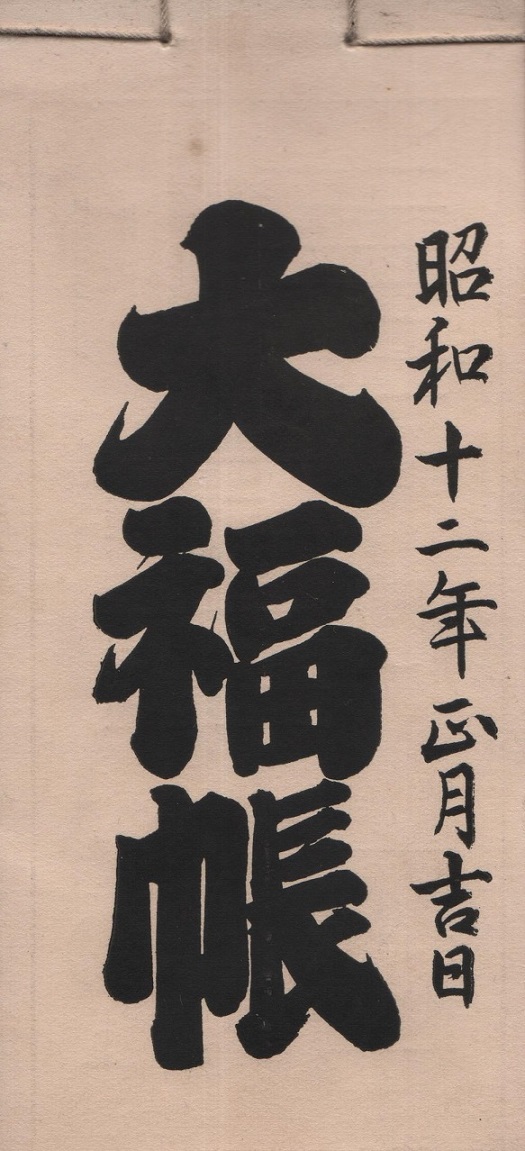 昭和十二年正月吉日
大福帳